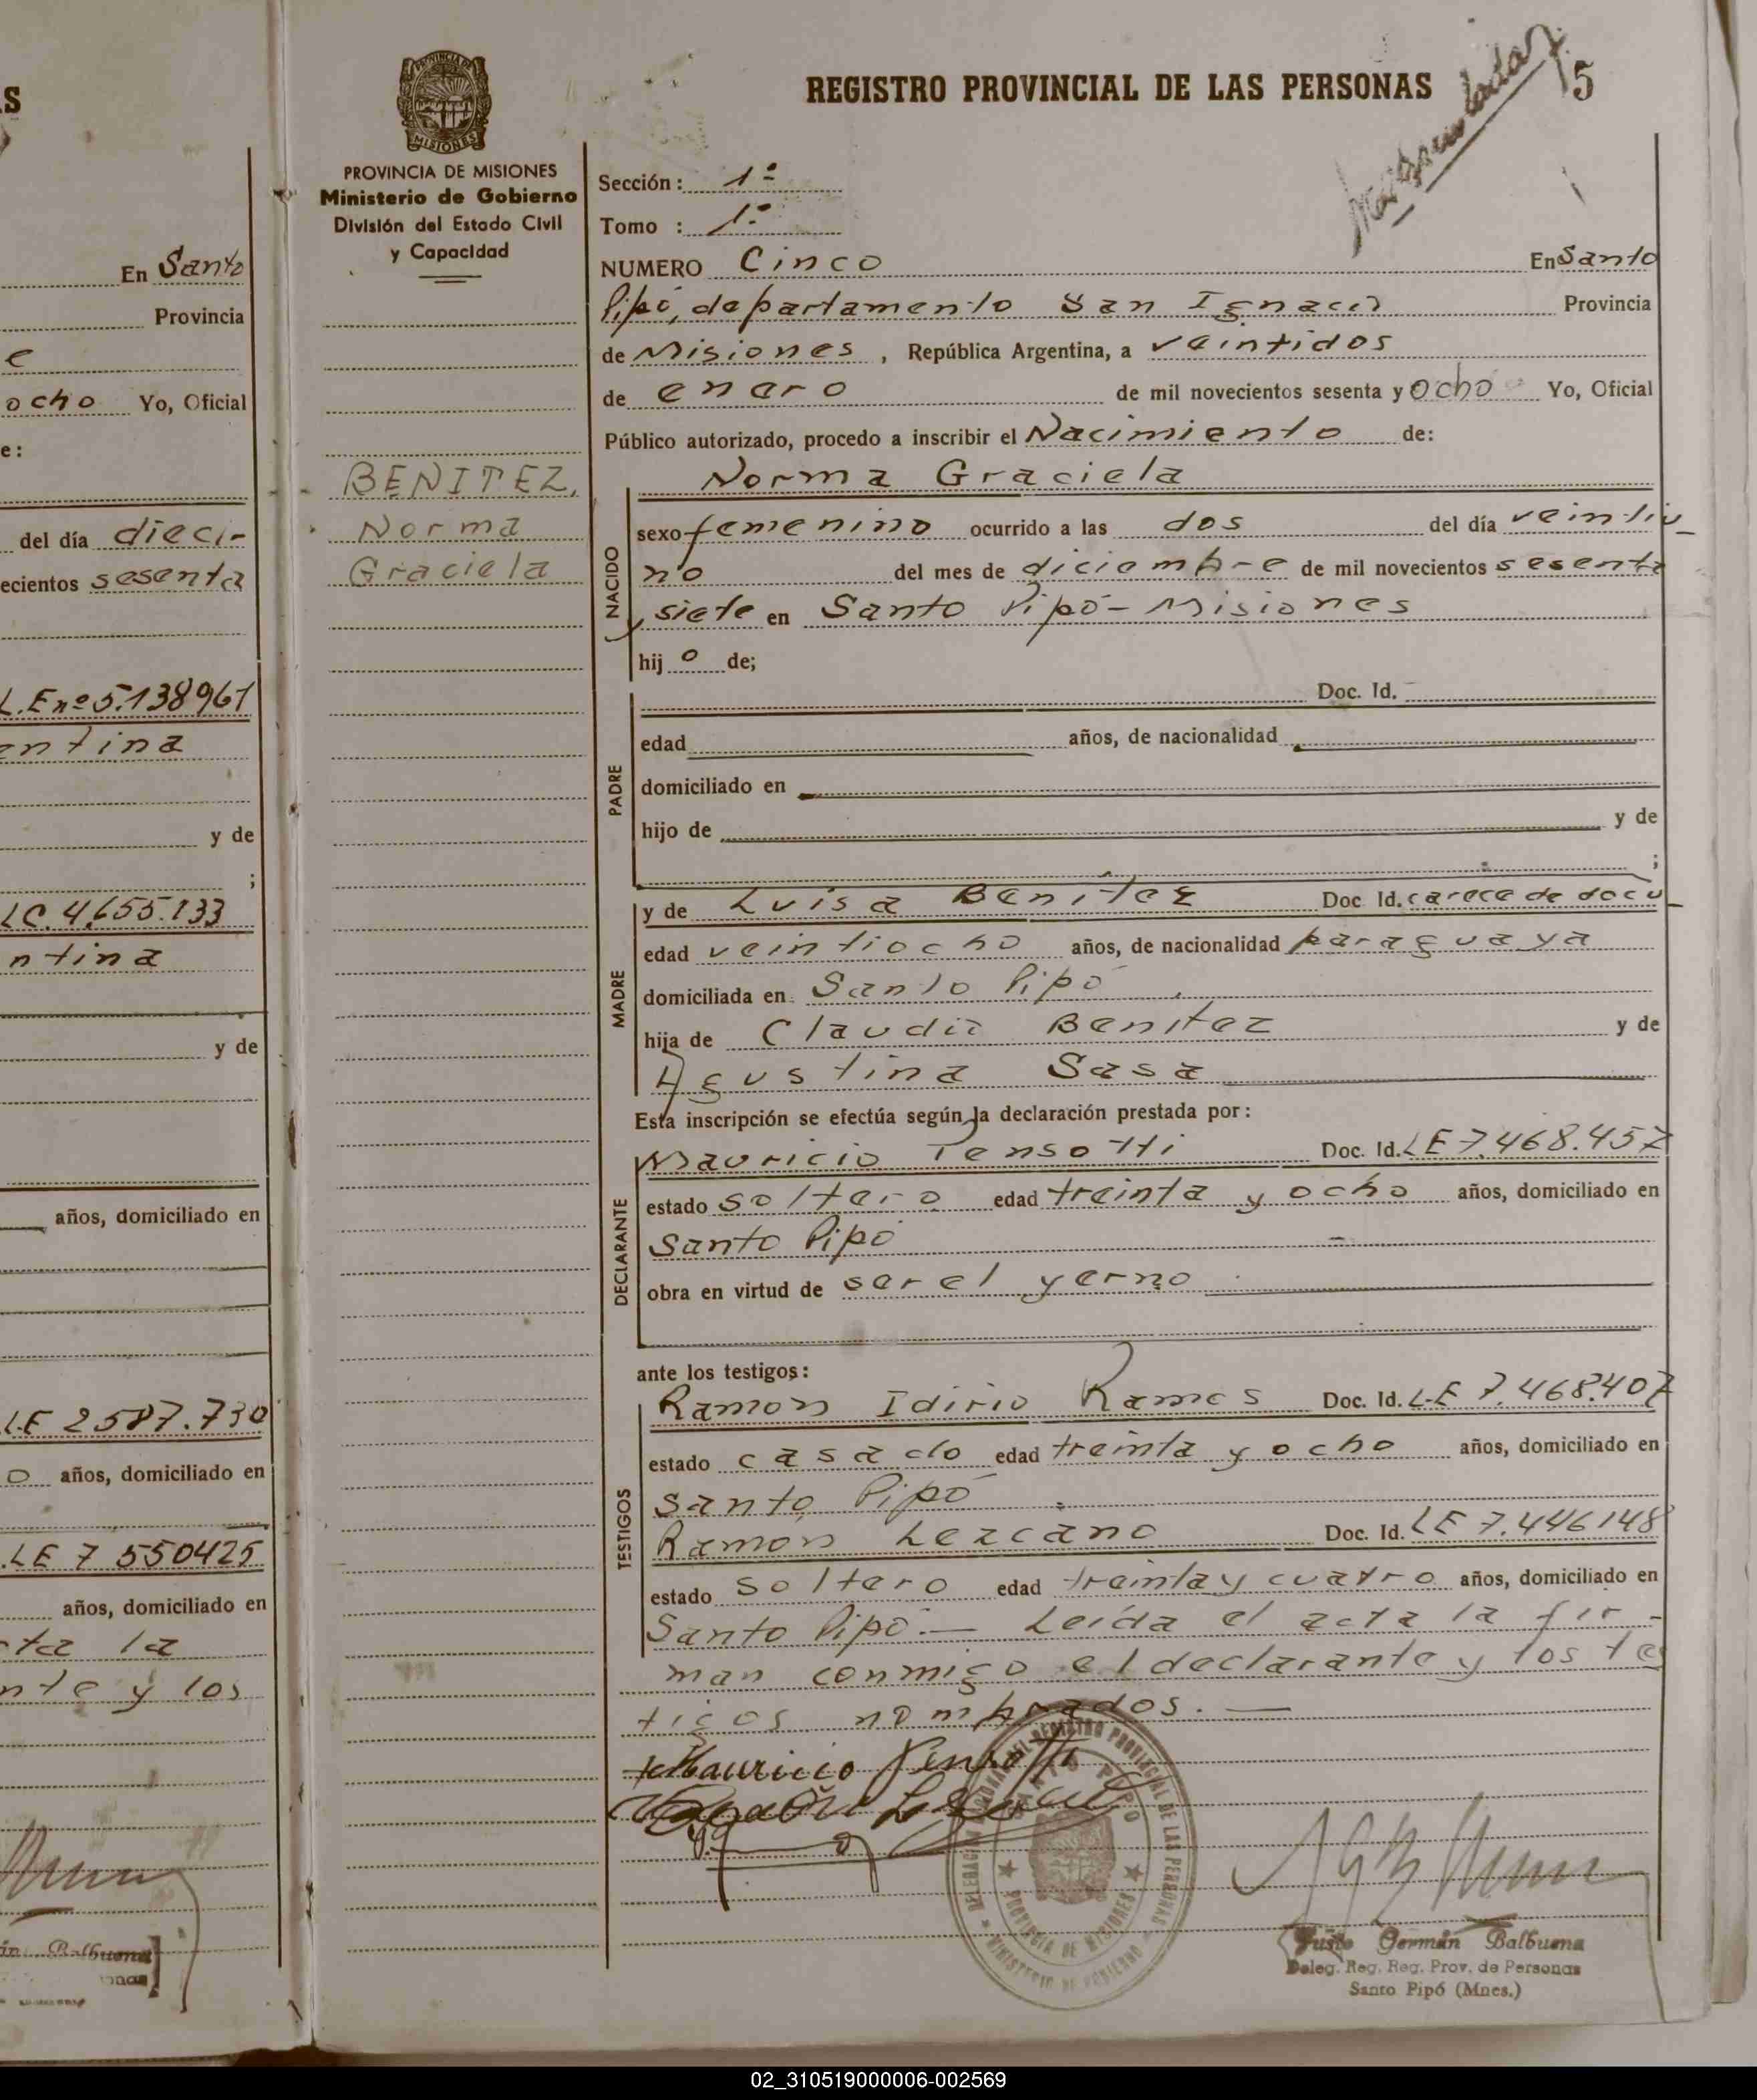 S
En Santo
Provincia
e
ocho Yo, Oficial
e:
del día dieci-
ecientos sesenta
L.E nº 5.138961
entina
y de
;
LC. 4.655.133
ntina
y de
años, domiciliado en
LE 2587.730
o años, domiciliado en
LE 7 550425
años, domiciliado en
cta la
nte y los
Balbuena
onas
PROVINCIA DE MISIONES
Ministerio de Gobierno
División del Estado Civil
y Capacidad
BENITEZ,
Norma
Graciela
REGISTRO PROVINCIAL DE LAS PERSONAS
5
Sección: 1º
Tomo : 1º
NUMERO Cinco En Santo
Pipó, departamento San Ignacio Provincia
de Misiones, República Argentina, a veintidos
de enero de mil novecientos sesenta y ocho Yo, Oficial
Público autorizado, procedo a inscribir el Nacimiento de:
Norma Graciela
NACIDO
sexo femenino ocurrido a las dos del día veintiu-
no del mes de diciembre de mil novecientos sesenta
y siete en Santo Pipó - Misiones
hij o de;
PADRE
Doc. Id.
edad años, de nacionalidad
domiciliado en
hijo de y de
;
MADRE
y de Luisa Benitez Doc Id. carece de docu-
edad veintiocho años, de nacionalidad paraguaya
domiciliada en Santo Pipó
hija de Claudio Benitez y de
Agustina Sasa
Esta inscripción se efectúa según la declaración prestada por:
DECLARANTE
Mauricio Tensotti Doc. Id. LE 7.468.457
estado soltero edad treinta y ocho años, domiciliado en
Santo Pipó
obra en virtud de ser el yerno
ante los testigos:
TESTIGOS
Ramon Idirio Ramos Doc. Id. L-E 7.468.407
estado casado edad treinta y ocho años, domiciliado en
Santo Pipó
Ramon Lezcano Doc. Id. LE 7.446148
estado soltero edad treinta y cuatro años, domiciliado en
Santo Pipó.— Leída el acta la fir-
man conmigo el declarante y los te
tigos nombrados.—
Mauricio Tensotti
DELEGACION REGIONAL DEL REGISTRO PROVINCIAL DE LAS PERSONAS
SANTO PIPO
PROVINCIA DE MISIONES
MINISTERIO DE GOBIERNO
Justo Germán Balbuena
Deleg. Reg. Reg. Prov. de Personas
Santo Pipó (Mnes.)
02_310519000006-002569